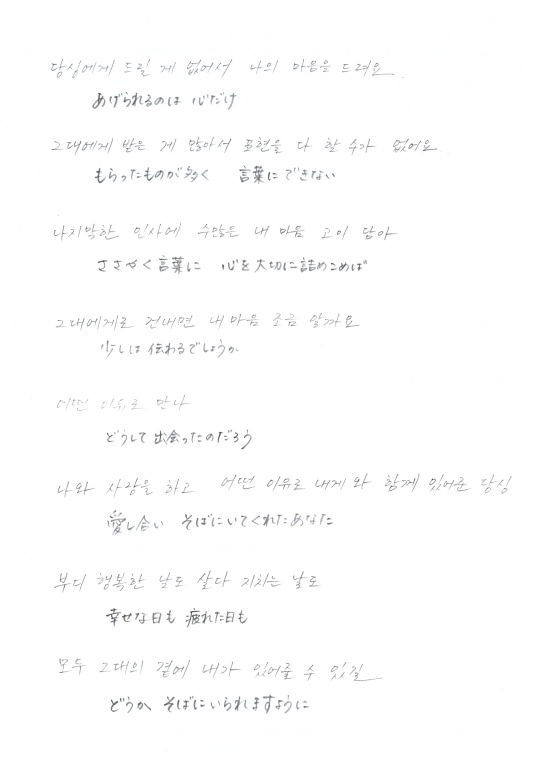 당신에게 드릴 게 없어서 나의 마음을 드려요
あげられるのは 心だけ
그대에게 받은 게 많아서 표현을 다 할 수가 없어요
もらったものが多く 言葉に できない
나지막한 인사에 수많은 내 마음 고이 담아
ささやく言葉に 心を大切に詰めこめば
그대에게로 건내면 내 마음 조금 알까요
少しは 伝わるでしょうか
어떤 이유로 만나
どうして 出会ったのだろう
나와 사랑을 하고 어떤 이유로 내게 와 함께 있어준 당신
愛し合い そばにいてくれたあなた
부디 행복한 날도 살다 지치는 날도
幸せな日も 疲れた日も
모두 그대의 곁에 내가 있어줄 수 있길
どうか そばにいられますように